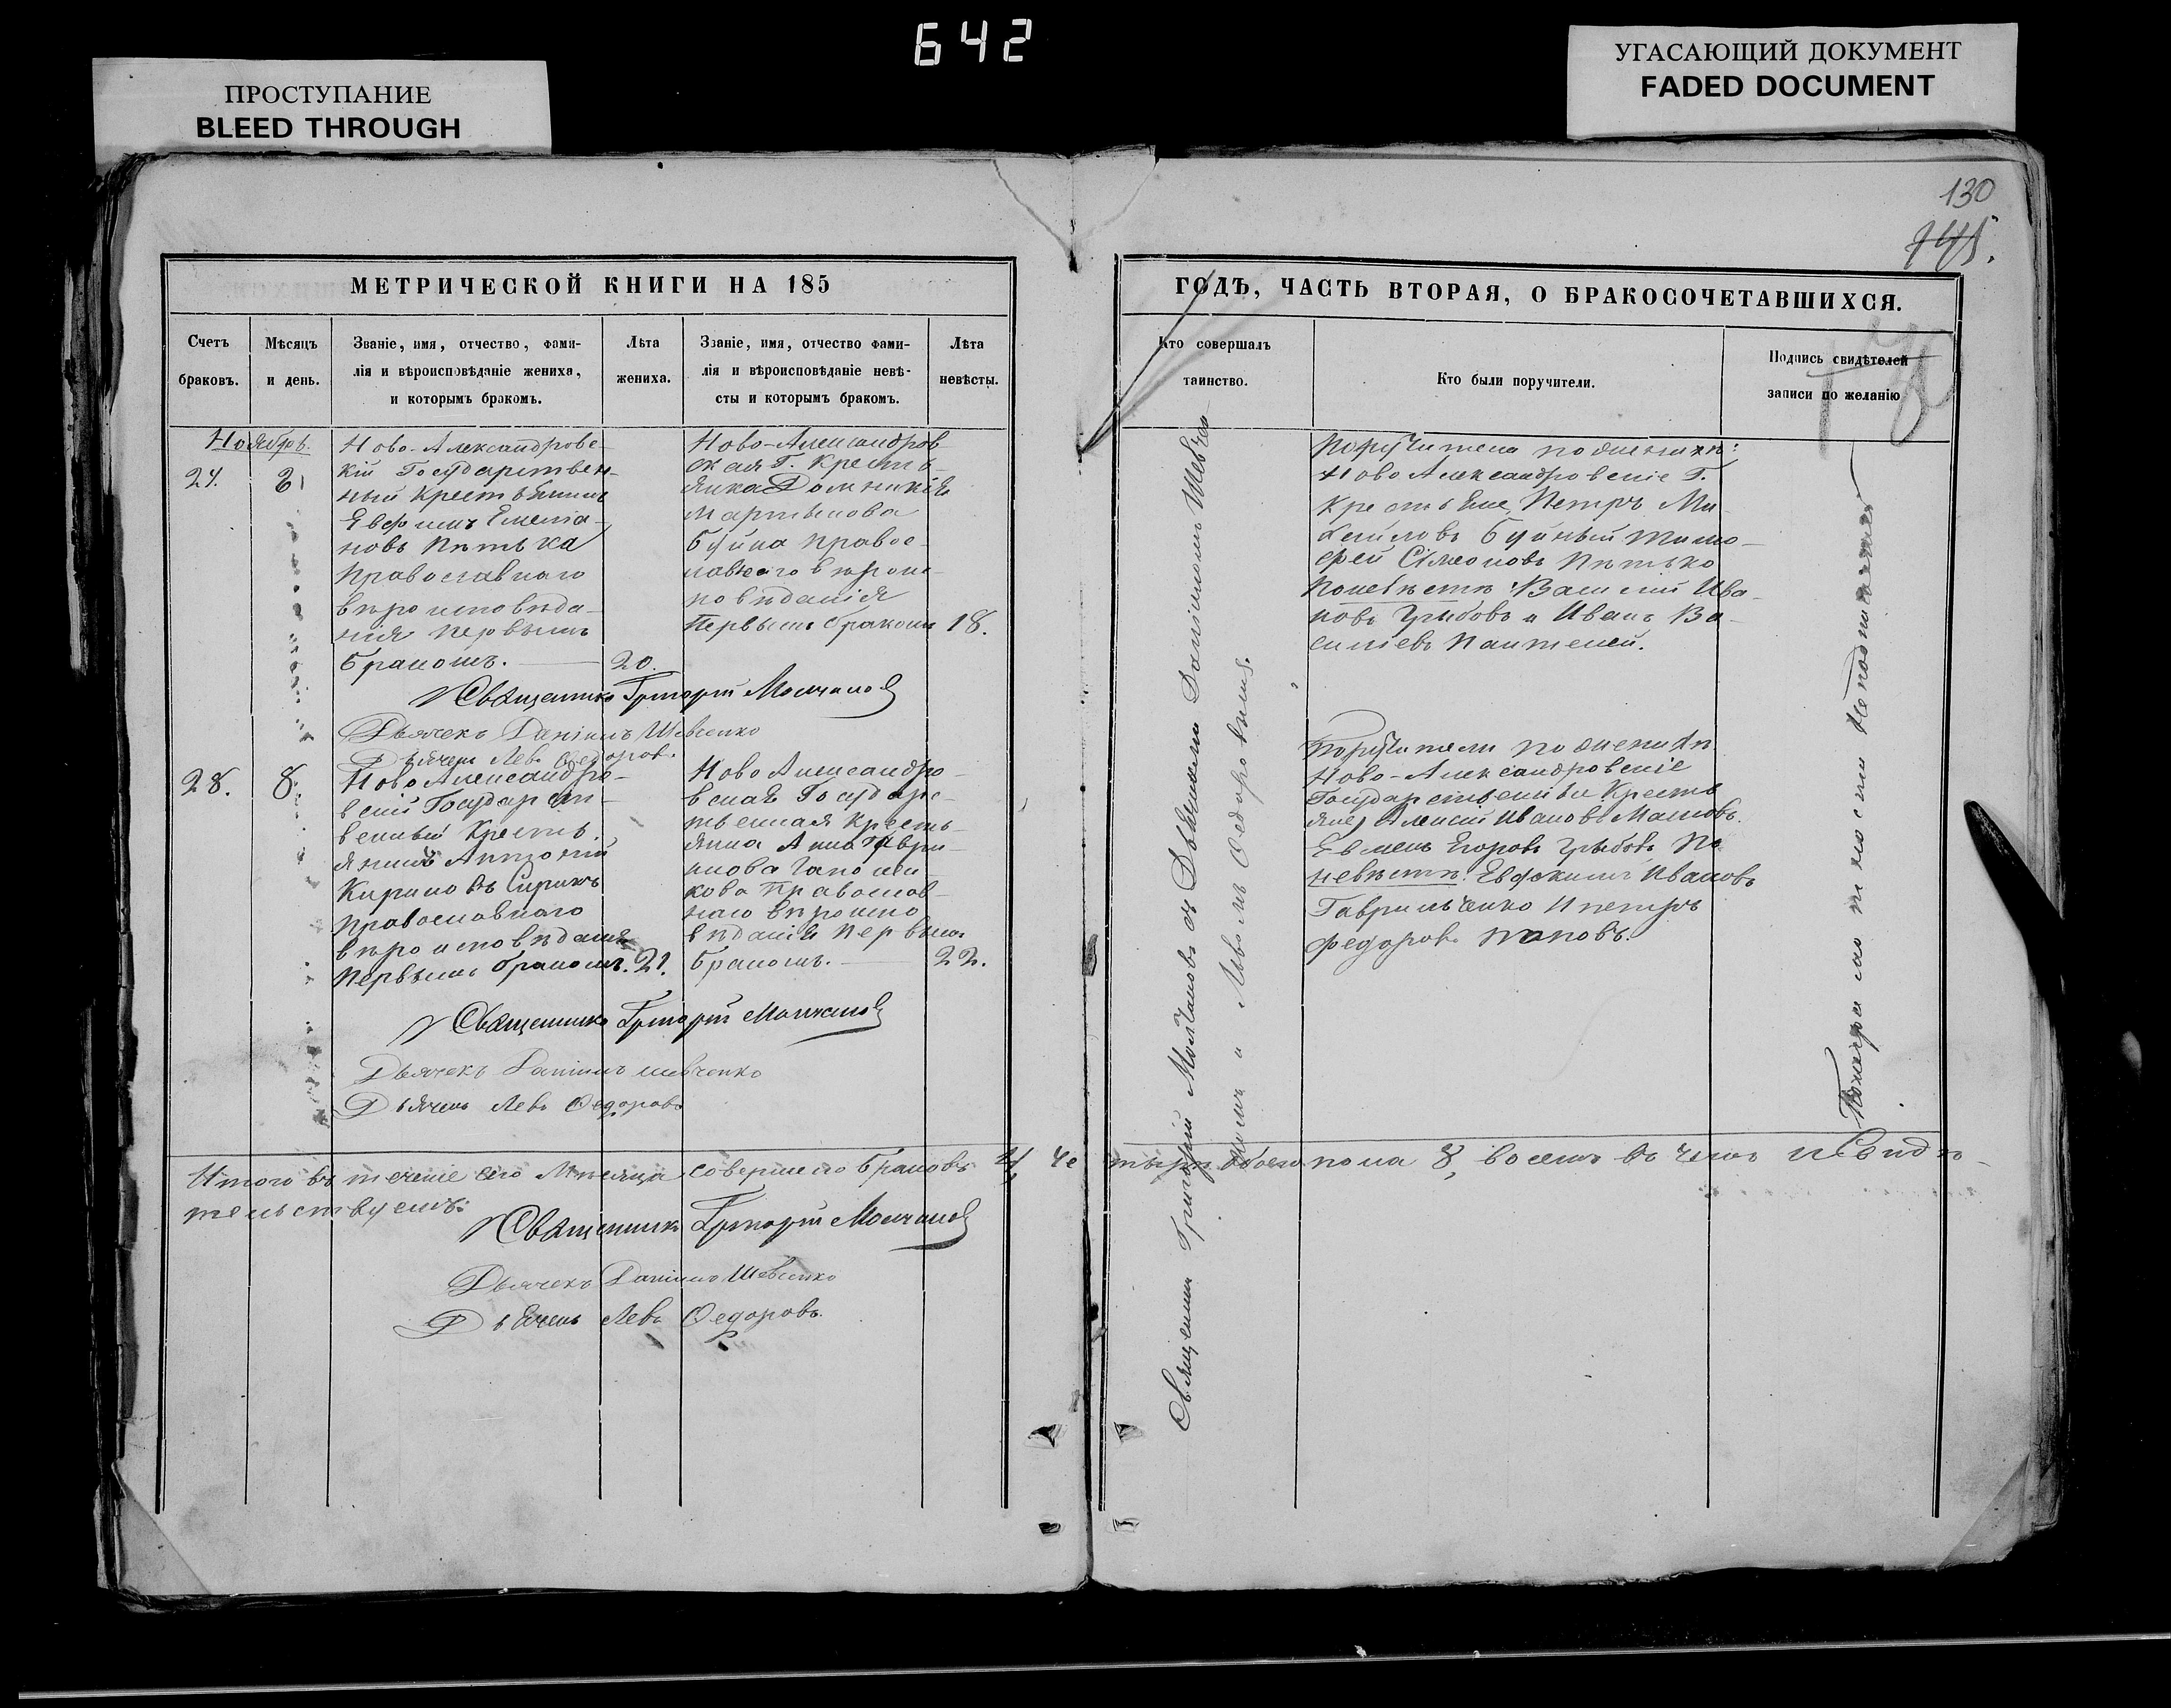 642
ПРОСТУПАНИЕ
BLEED THROUGH
УГАСАЮЩИЙ ДОКУМЕНТ
FADED DOCUMENT
130
МЕТРИЧЕСКОЙ КНИГИ НА 185
Счетъ браковъ.
Мѣсяцъ и день.
Званіе, имя, отчество, фами-
лія и вѣроисповѣданіе жениха,
и которымъ бракомъ.
Лѣта жениха.
Званіе, имя, отчество фами-
лія и вѣроисповѣданіе невѣ-
сты и которымъ бракомъ.
Лѣта невѣсты.
Ноябрь.
Ново-Александровс-
кій Государствен-
ный Крестьянинъ
Евфимъ Емелiа-
новъ Пѣтька
Православнаго
вѣроисповѣда-
нія первымъ
бракомъ. 20.
Ново-Александров
ская Г. Крестъ-
янка Домникія
Мартынова
Буйна Правос-
лавнаго вѣроис-
повѣданія
Первымъ бракомъ 18.
Священникъ Григорій Молчановъ
Дьячекъ Даніилъ Шевченко
Дьячекъ Левъ Ѳедоровъ
28. 8.
Ново Александро-
вскій Государст-
венный Кресть-
янинъ Антоній
Кириловъ
Православнаго
вѣроисповѣданія
Первымъ бракомъ. 21.
Ново Александро-
вская Государс-
твенная Кресть-
янка Анна Гаври-
лова
кова Православ-
наго вѣроиспо
вѣданія первымъ
бракомъ. 22.
Священникъ Григорій Молчановъ
Дьячекъ Даніилъ Шевченко
Дьячекъ Левъ Ѳедоровъ
Итого въ теченіе сего Мѣсяца совершено браковъ 4, че
тельствуемъ:
Священникъ Григорій Молчановъ
Дьячекъ Даніилъ Шевченко
Дьячекъ Левъ Ѳедоровъ.
ГОДЪ, ЧАСТЬ ВТОРАЯ, О БРАКОСОЧЕТАВШИХСЯ.
Кто совершалъ таинство.
Кто были поручители.
Подпись свидѣтелей
записи по желанію
Священникъ Григорій Молчановъ съ Дьячками Даніиломъ Шевчен-
комъ и Львомъ Ѳедоровымъ.
Поручители по женихѣ:
Ново Александровскіе Г.
Крестьяне, Петръ Ми-
хайловъ Буйный Тимо-
фей Сімеоновъ Пѣтько
По невѣстѣ Василій Ива-
новъ Грыбовъ и Иванъ Ва-
сильевъ Пантелей.
Поручители по женихѣ
Ново-Александровскіе
Государственные Кресть
яне, Алексій Ивановъ
Евмен Егоровъ Грыбовъ По
невѣстѣ: Евфимій Ивановъ
Гаврильченко и Петръ
Федоровъ Поповъ.
тыри, обоего пола 8, восемь въ чемъ и Свидѣ-